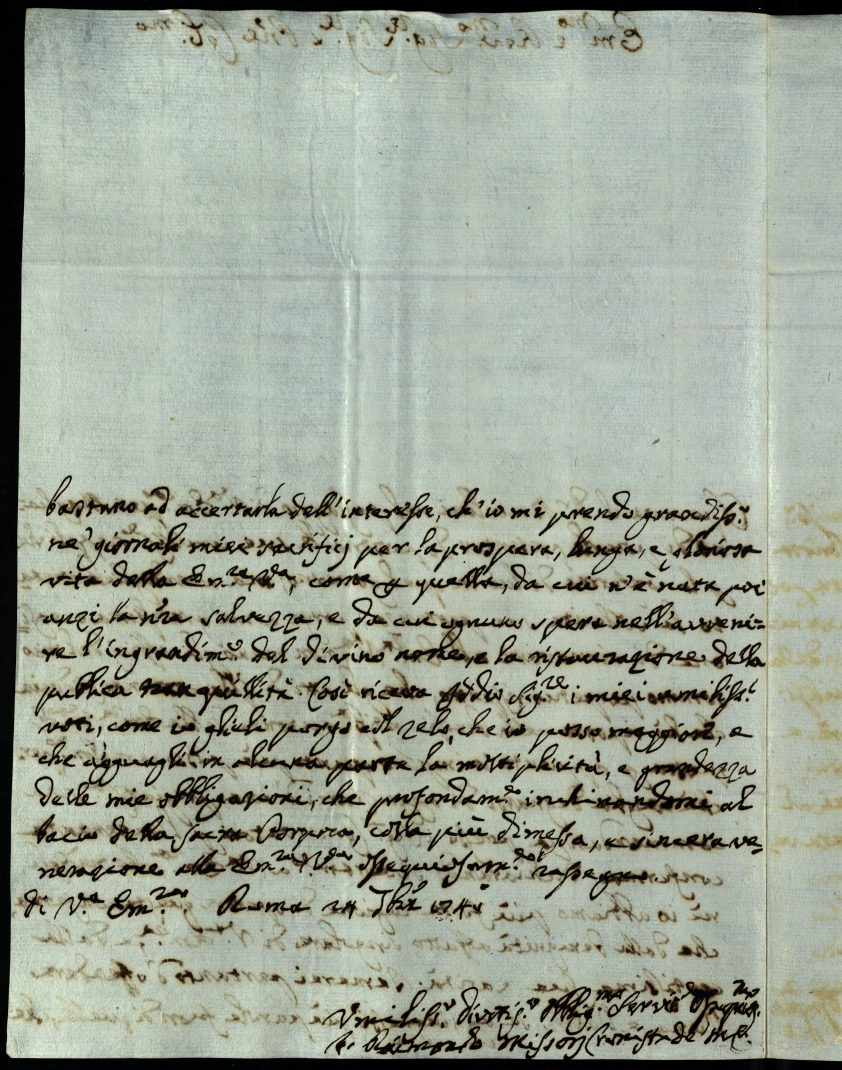 bastano ad accertarla dell'interesse, ch'io mi prendo grandiss.º
ne' giornali miei sacrificj per la prospera, lunga, e gloriosa
vita della Em.za V.ra, come p quella, da cui n'è nata poi
anzi la nra salvezza, e da cui ognuno spera nell'avveni=
re l'ingrandim.º del divino nome, e la ristaurazione della
publica tranquillità. Così riceva Iddio Sig.re i miei umiliss.i
voti, come io glieli porgo col zelo, che io posso maggiore, e
che agguagli in alcuna parte la moltiplicità, e grandezza
delle mie obbligazioni, che profondam.e inchinandomi al
bacio della Sacra Porpora, colla più dimessa, e sincera ve=
nerazione alla Em.za V.ra ossequiosam.e rassegno.
di V.ra Em.za Roma 24 Xbre
Umiliss.º Divotis.º Obblig.mo Serv.e Ossequios.mo
F. Raimondo Missorj